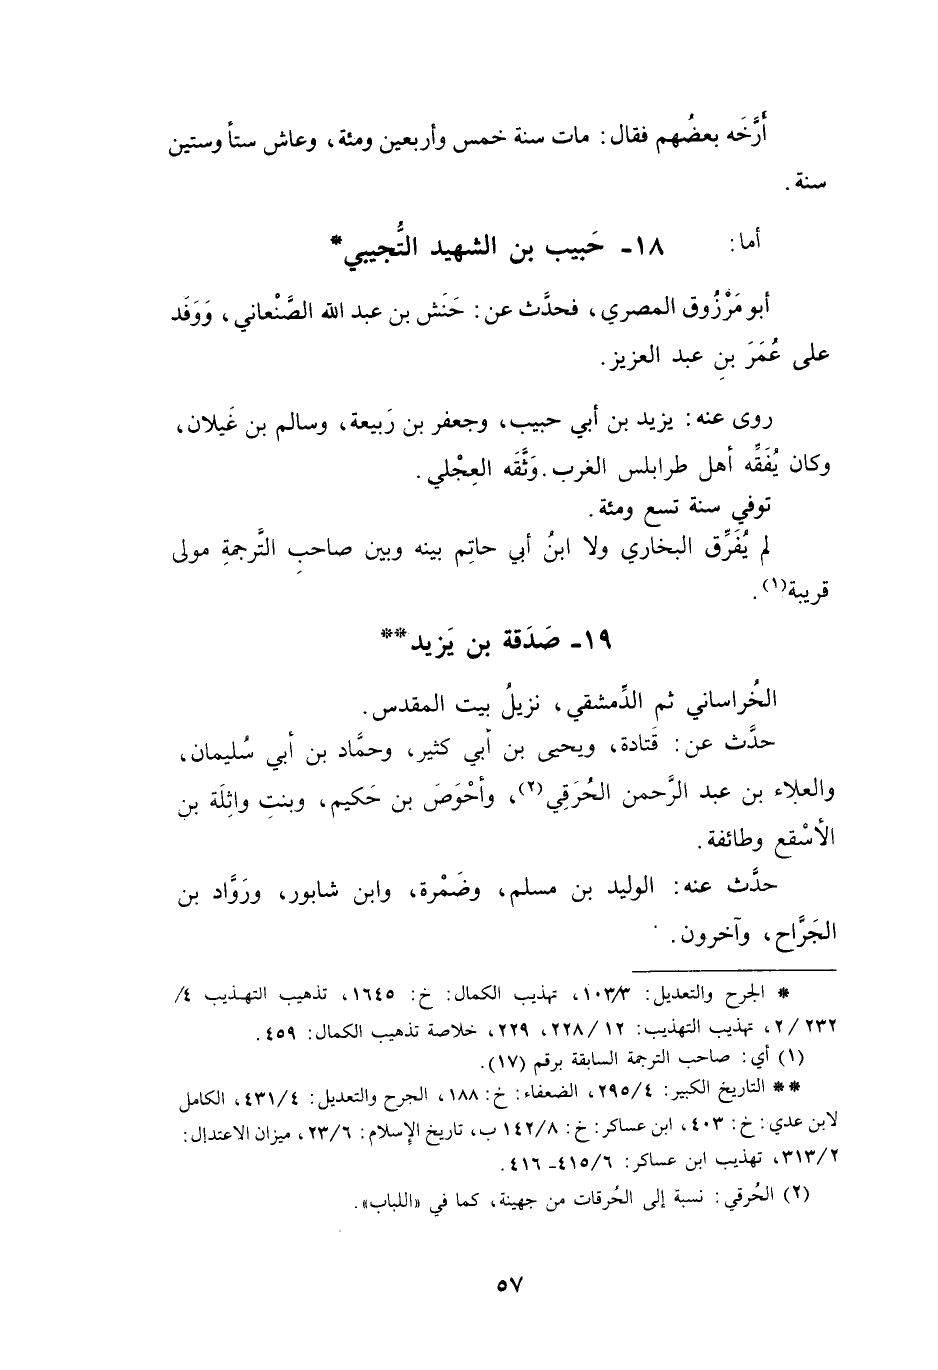 أَرَّخَه بعضُهم فقال: مات سنة خمس وأربعين ومئة، وعاش ستاً وستين
سنة.
أما: ١٨ـ حَبيب بن الشهيد التُّجيبي*
أبو مَرْزُوق المصري، فحدَّث عن: حَنَش بن عبد الله الصَّنْعاني، وَوَفَد
على عُمَرَ بنِ عبد العزيز.
روى عنه: يزيد بن أبي حبيب، وجعفر بن رَبيعة، وسالم بن غَيلان،
وكان يُفَقِّه أهل طرابلس الغرب. وَثَّقَه العِجْلي.
توفي سنة تسع ومئة.
لم يُفَرِّق البخاري ولا ابنُ أبي حاتِم بينه وبين صاحبِ التَّرجمةِ مولى
قريبة(١).
١٩ـ صَدَقة بن يَزيد**
الخُراساني ثم الدِّمشقي، نزيلُ بيت المقدس.
حدَّث عن: قَتادة، ويحيى بن أبي كثير، وحمَّاد بن أبي سُليمان،
والعلاء بن عبد الرَّحمن الحُرَقِي(٢)، وأحْوَصَ بن حَكيم، وبنتِ واثِلَة بنِ
الأسْقع وطائفة.
حدَّث عنه: الوليد بن مسلم، وضَمْرة، وابن شابور، ورَوَّاد بن
الجَرَّاح، وآخرون.
* الجرح والتعديل: ١٠٣/٣، تهذيب الكمال: خ: ١٦٤٥، تذهيب التهذيب ٤/
٢٣٢ /٢، تهذيب التهذيب: ١٢ /٢٢٨، ٢٢٩، خلاصة تذهيب الكمال: ٤٥٩.
(١) أي: صاحب الترجمة السابقة برقم (١٧).
** التاريخ الكبير: ٢٩٥/٤، الضعفاء: خ: ١٨٨، الجرح والتعديل: ٤٣١/٤، الكامل
لابن عدي: خ: ٤٠٣، ابن عساكر: خ: ١٤٢/٨ ب، تاريخ الإسلام: ٢٣/٦، ميزان الاعتدال:
٣١٣/٢، تهذيب ابن عساكر: ٤١٥/٦ـ ٤١٦.
(٢) الحُرقي: نسبة إلى الحُرقات من جهينة، كما في «اللباب».
٥٧